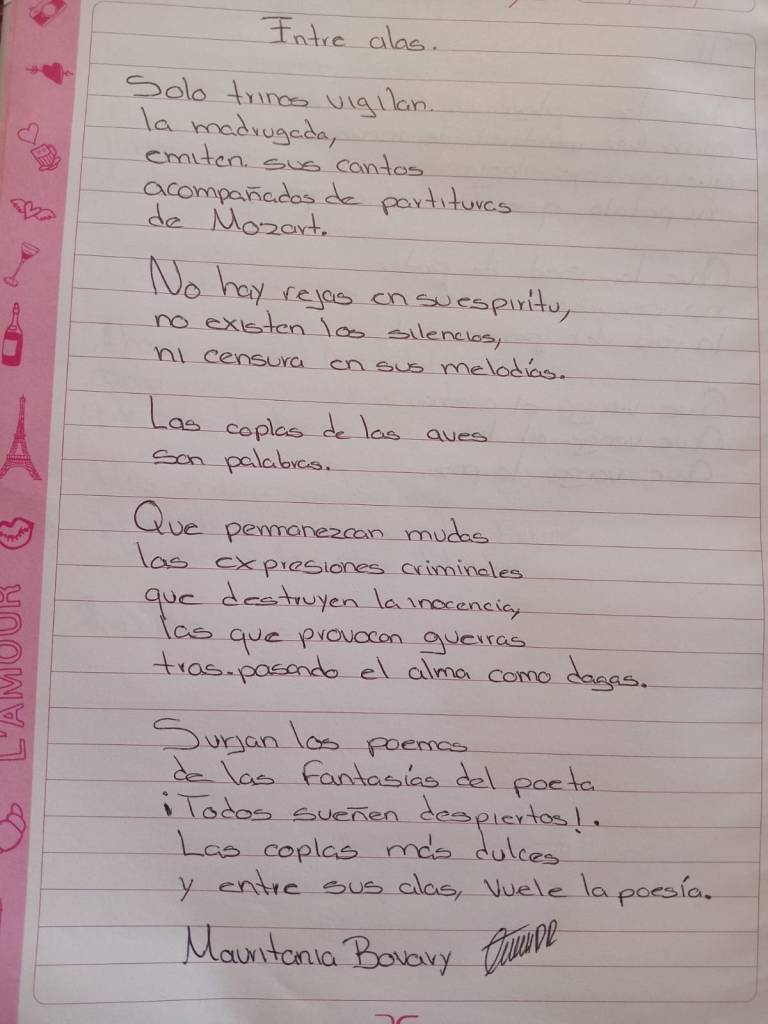 Entre alas.
Solo trinos vigilan.
la madrugada,
emiten. sus cantos
acompañados de partituras
de Mozart.
No hay rejas en su espíritu,
no existen los silencios,
ni censura en sus melodías.
Las coplas de las aves
son palabras.
Que permanezcan mudas
las expresiones criminales
que destruyen la inocencia,
las que provocan guerras
tras-pasando el alma como dagas.
Surjan los poemas
de las fantasías del poeta
¡Todos sueñen despiertos!.
Las coplas más dulces
y entre sus alas, vuele la poesía.
Mauritania Bovary
L'AMOUR